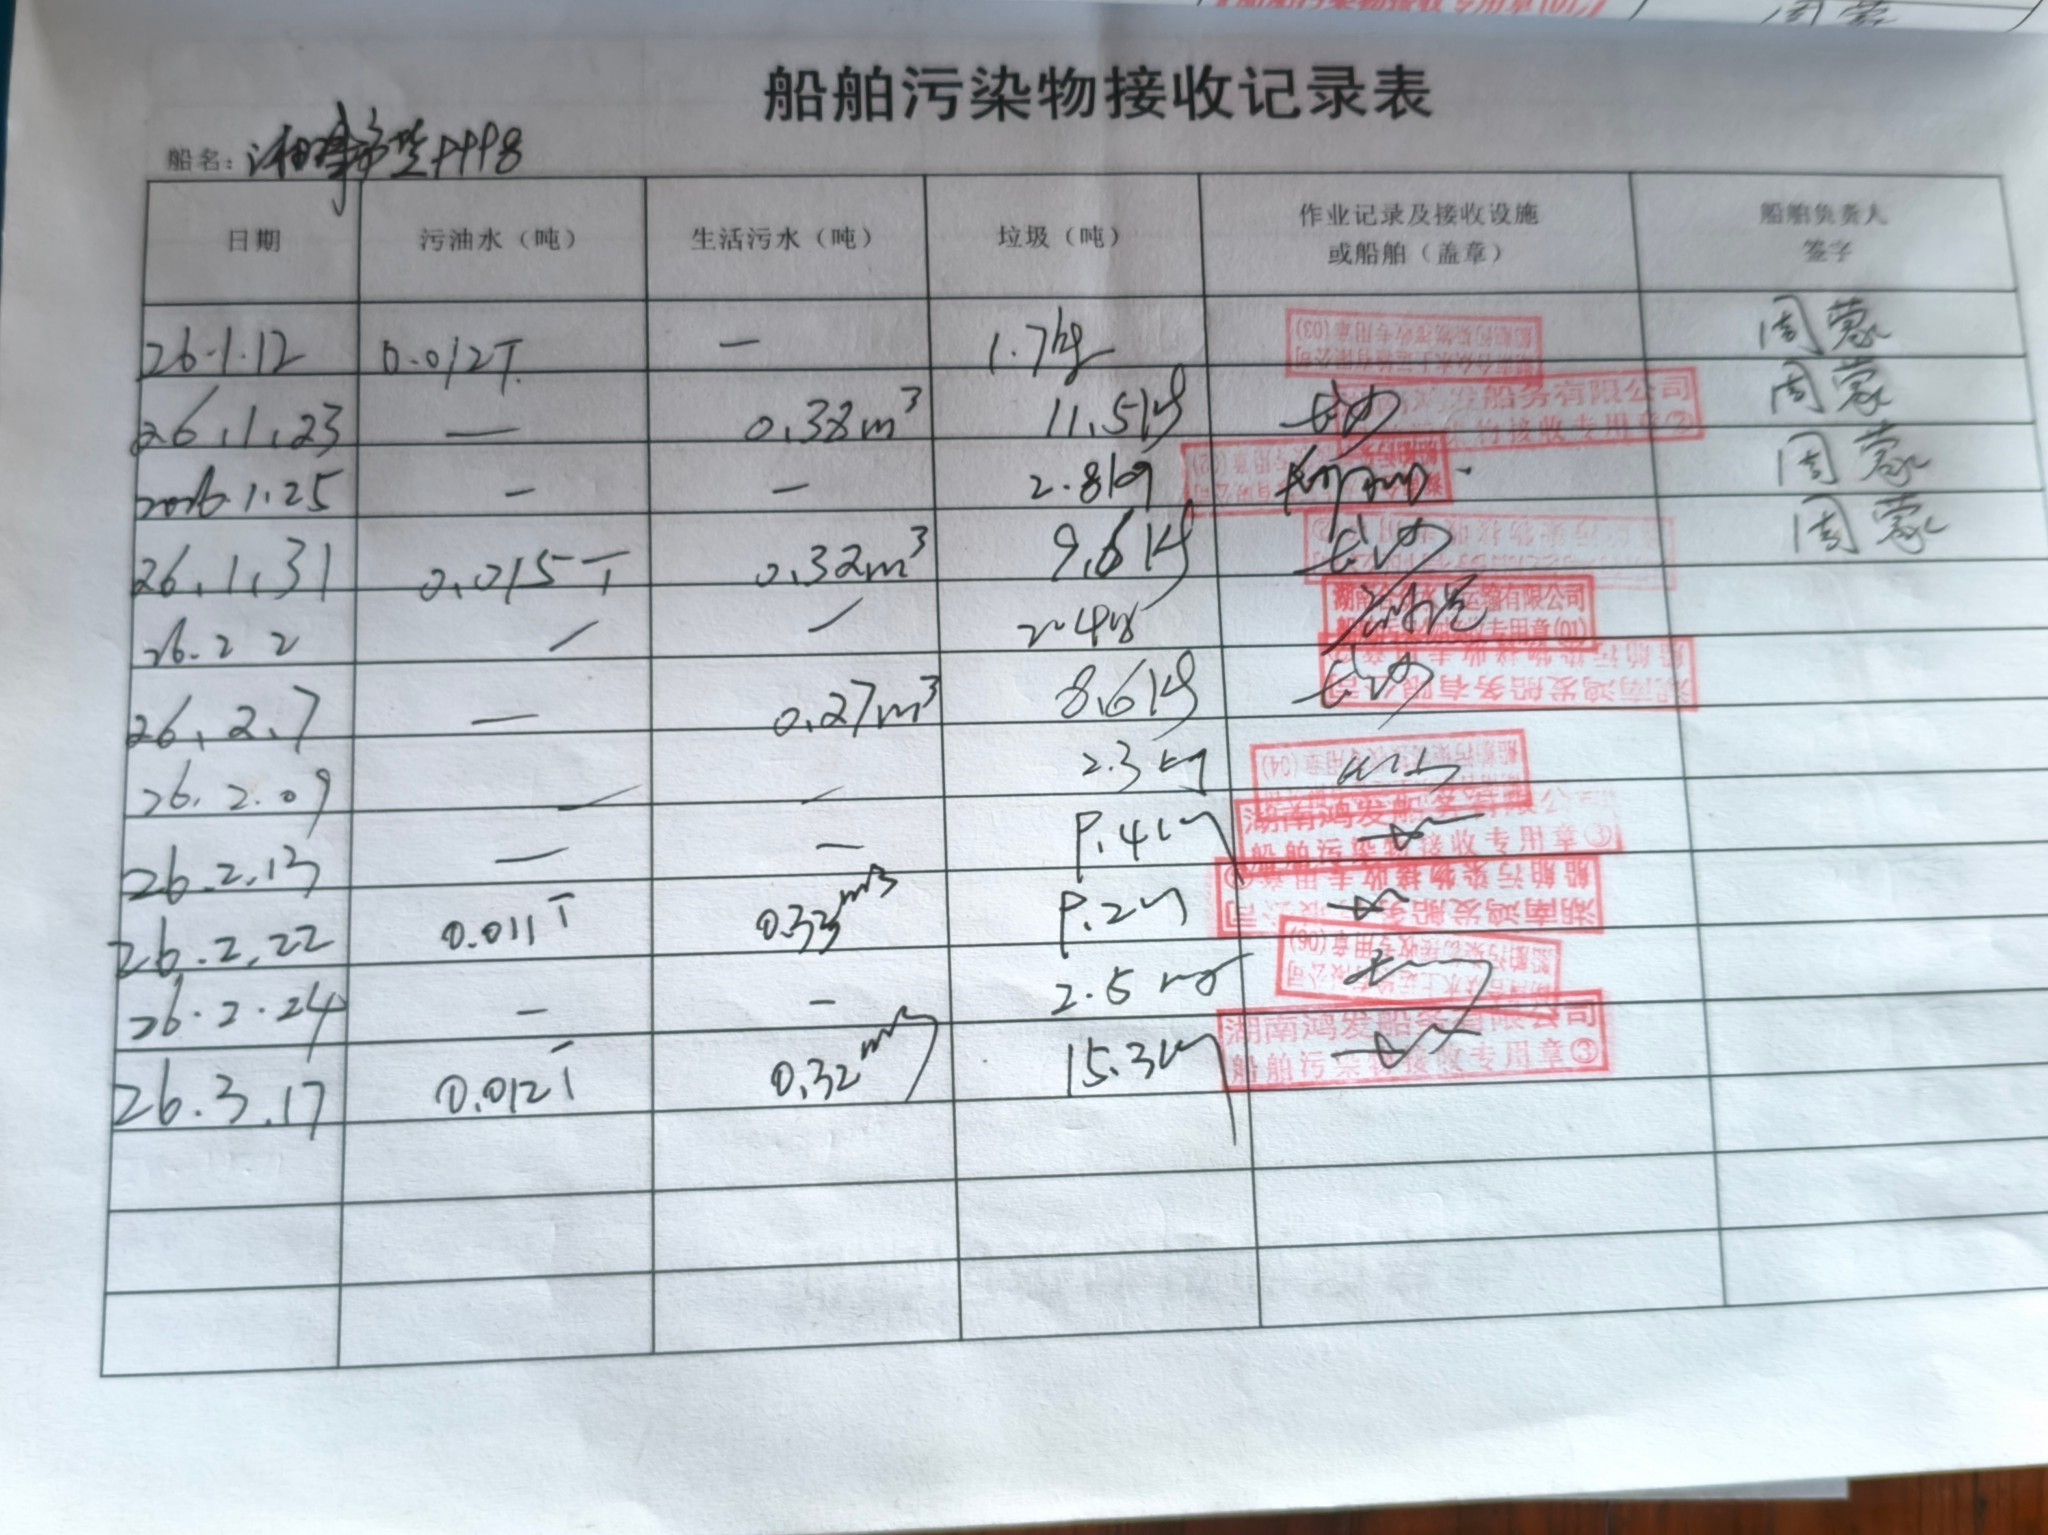 周蒙
船舶污染物接收记录表
船名：
日期 污油水（吨） 生活污水（吨） 垃圾（吨） 作业记录及接收设施或船舶（盖章） 船舶负责人签字
26.1.12 0.012T. — 1.7kg 船舶污染物接收专用章(03) 周蒙
26.1.23 — 0.38m³ 11.5kg 长沙 船务有限公司 接收专用章② 周蒙
2026.1.25 — — 2.8kg 周蒙
26.1.31 0.015T 0.32m³ 9.6kg 长沙 周蒙
26.2.2 / / 2.4kg 运输有限公司 专用章(01)
26.2.7 — 0.27m³ 8.6kg 长沙 湖南鸿发船务有限公司 船舶污染物接收专用章
26.2.09 — — 2.3kg 专用章(04)
26.2.13 — — 湖南鸿发船务有限公司 船舶污染物接收专用章③
26.2.22 0.011T 0.33m³ 湖南鸿发船务有限公司 船舶污染物接收专用章
26.2.24 — — 2.5kg 船舶污染物接收专用章(06)
26.3.17 0.012T 0.32m³ 15.3kg 湖南鸿发船务有限公司 船舶污染物接收专用章③